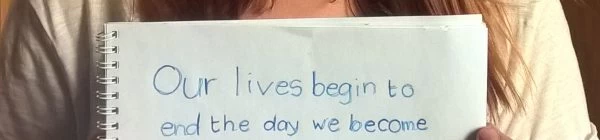 Our lives begin to
end the day we become